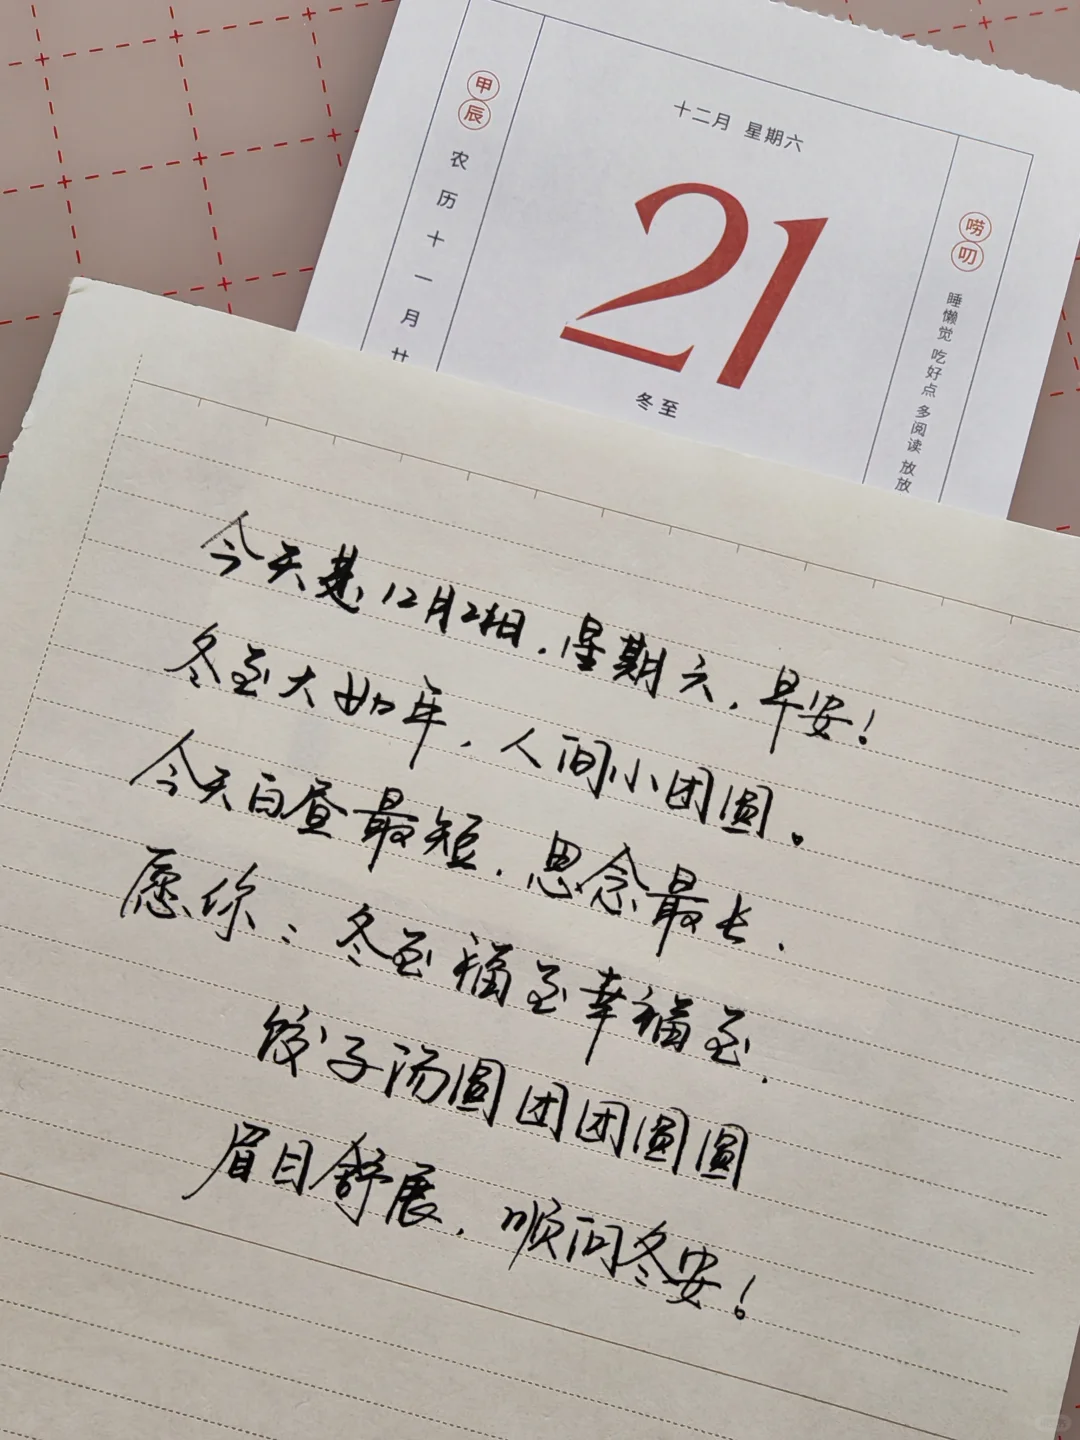 甲辰
农历十一月廿
十二月 星期六
21
冬至
唠叨
睡懒觉 吃好点 多阅读 放放
今天是12月21日，星期六，早安！
冬至大如年，人间小团圆。
今天白昼最短，思念最长，
愿你：冬至福至幸福至，
饺子汤圆团团圆圆
眉目舒展，顺问冬安！